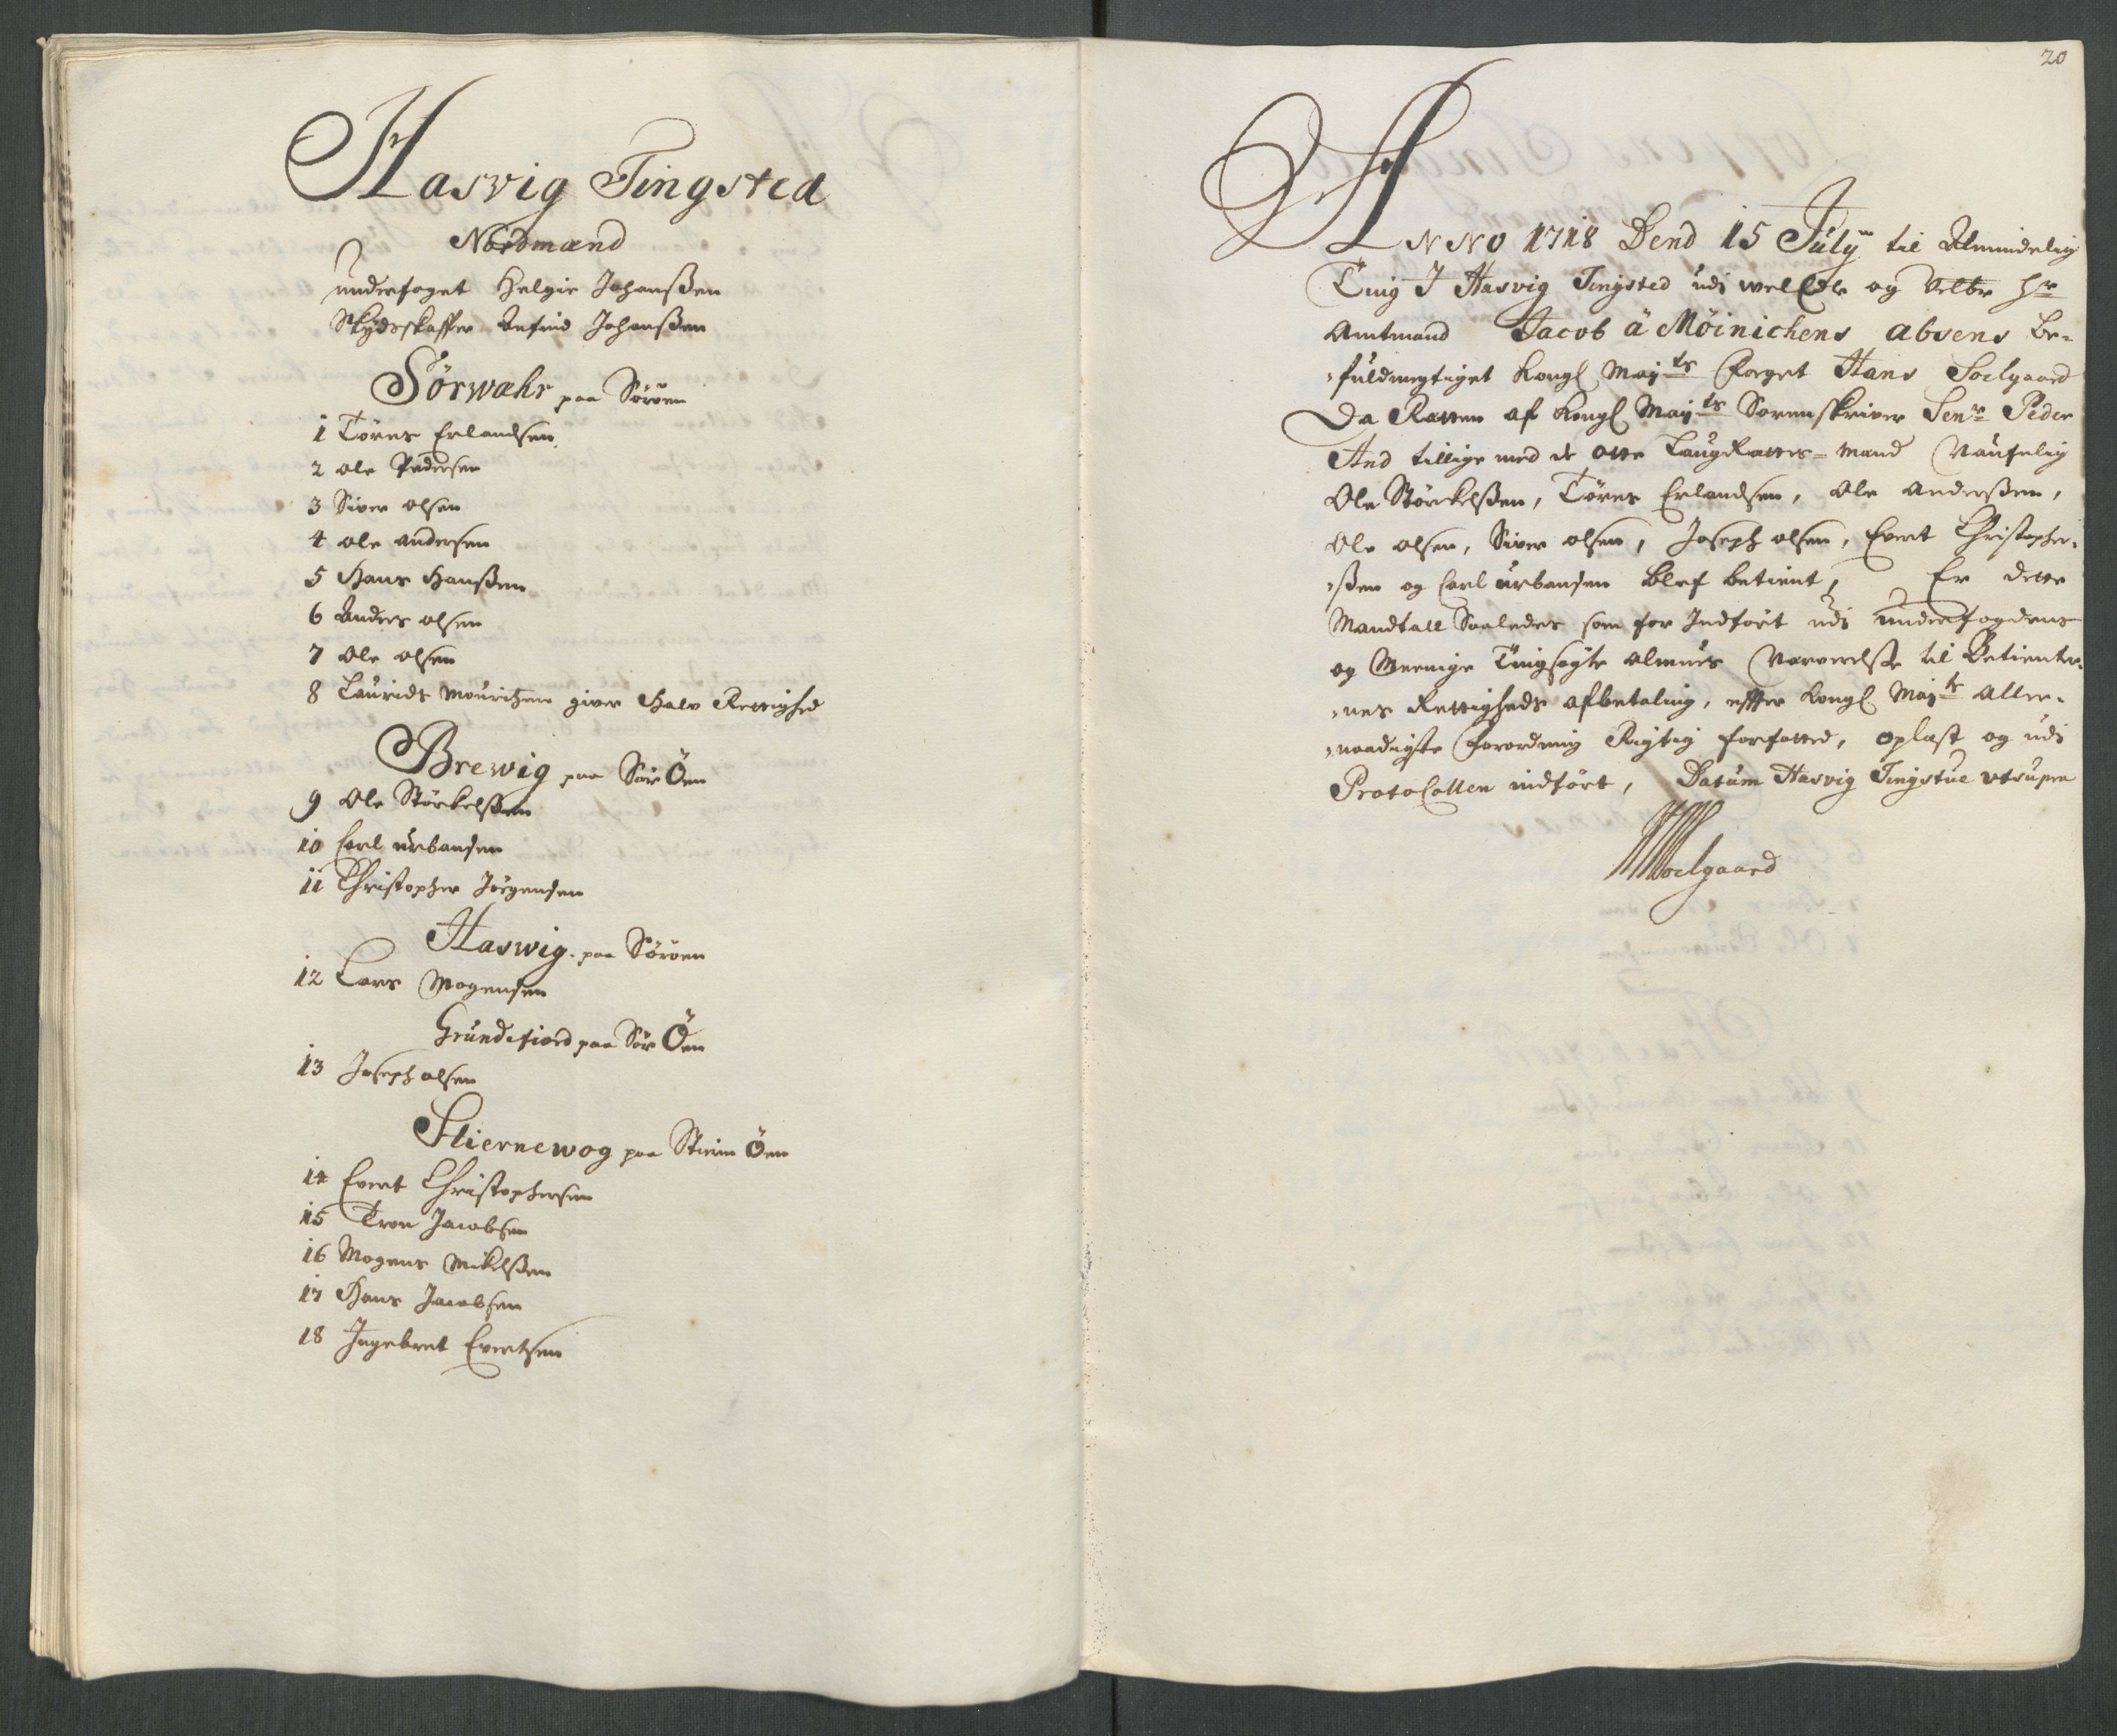 Hasvig Tingsted
Nordmænd
underfoget Helgie Johanßen
Skydsskaffer Anfind Johanßen
Sörwær paa Söröen
1 Töres Erlandsen
2 ole Pedersen
3 Siver olsen
4 ole andersen
5 Hans Hanßen
6 Anders olsen
7 Ole olsen
8 Laurids Mouritzen giver Halv Rettighed
Brewig paa Sör Öen
9 Ole Störkelßen
10 Carl urbansen
11 Christopher Jörgensen
Haswig paa Söröen
12 Lars Mogensen
Grundefiord paa Sör Öen
13 Joseph olsen
Stiernewog paa Stiern Öen
14 Evert Christophersen
15 Tron Jacobsen
16 Mogens Mikelßen
17 Hans Jacobsen
18 Ingebret Evertsen
20
ANNO 1718 Dend 15 July til Almindelig
Ting I Hasvig Tingsted udi welEdle og Velbr Hr
Amtmand Jacob ä Möinichens absens be-
-fuldmegtiget Kongl May:ts Foeget Hans Soelgaard
Da Ratten af Kongl May:ts Sorenskriver Senr Peder
And tillige med de otte LaugRattes-mænd Naufnlig
Ole Störckelßen, Töres Erlandsen, Ole Anderßen,
Ole olsen, Siver olsen, Joseph olsen, Evert Christopher-
-ßen og Carl urbansen blef betient, Er dette
Mandtall Saaledes som for Indfört udi underfogdens
og Meenige Tingsögte almues Nærverelße til Betienter-
-nes Rettigheds afbetaling, effter Kongl May:ts Aller-
-naadigste Forordning Rigtig forfatted, oplæst og udi
Protocollen indfört, Datum Hasvig Tingstue utsupra
HSoelgaard